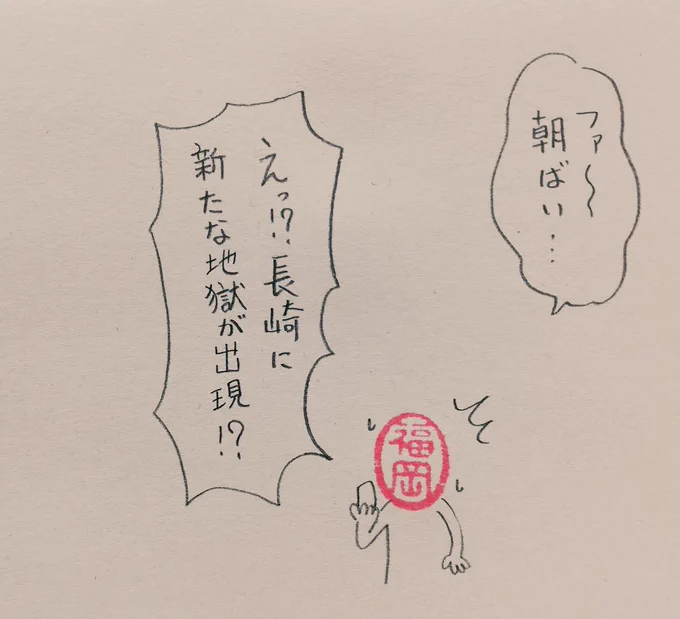 ファ〜〜
朝ばい…
えっ!?長崎に
新たな地獄が出現!?
福岡